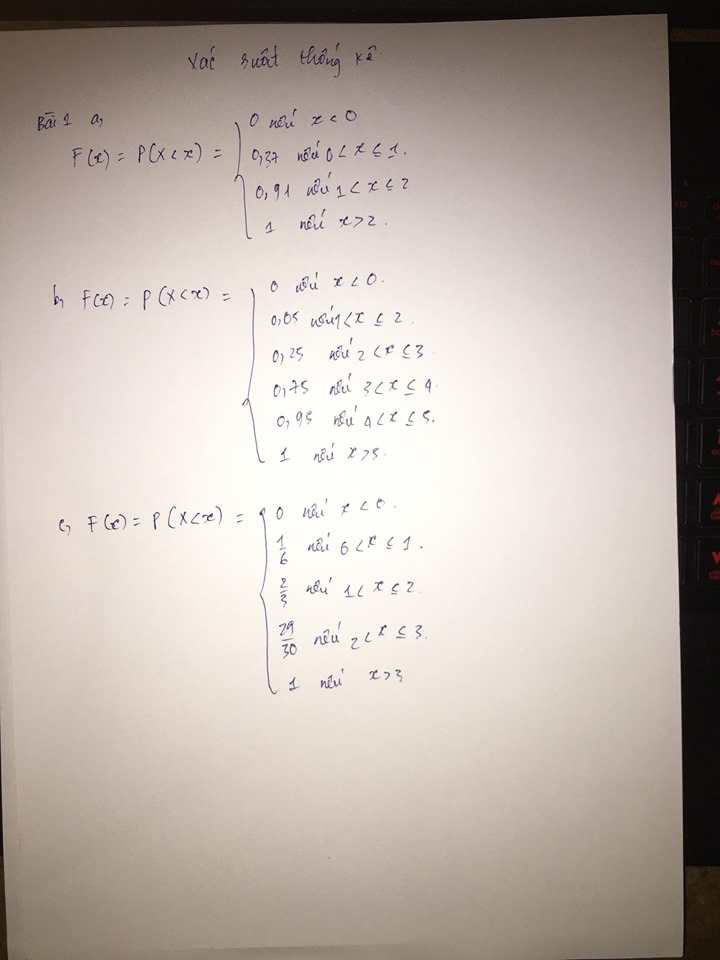 Xác suất thống kê
Bài 1 a,
F(x) = P(X<x) =
0 nếu x < 0
0,37 nếu 0 < x ≤ 1.
0,91 nếu 1 < x ≤ 2
1 nếu x > 2.
b, F(x) = P(X<x) =
0 nếu x < 0.
0,05 nếu 1 < x ≤ 2
0,25 nếu 2 < x ≤ 3
0,75 nếu 3 < x ≤ 4.
0,95 nếu 4 < x ≤ 5.
1 nếu x > 5.
c, F(x) = P(X<x) =
0 nếu x < 0.
1/6 nếu 0 < x ≤ 1.
2/3 nếu 1 < x ≤ 2.
29/30 nếu 2 < x ≤ 3.
1 nếu x > 3